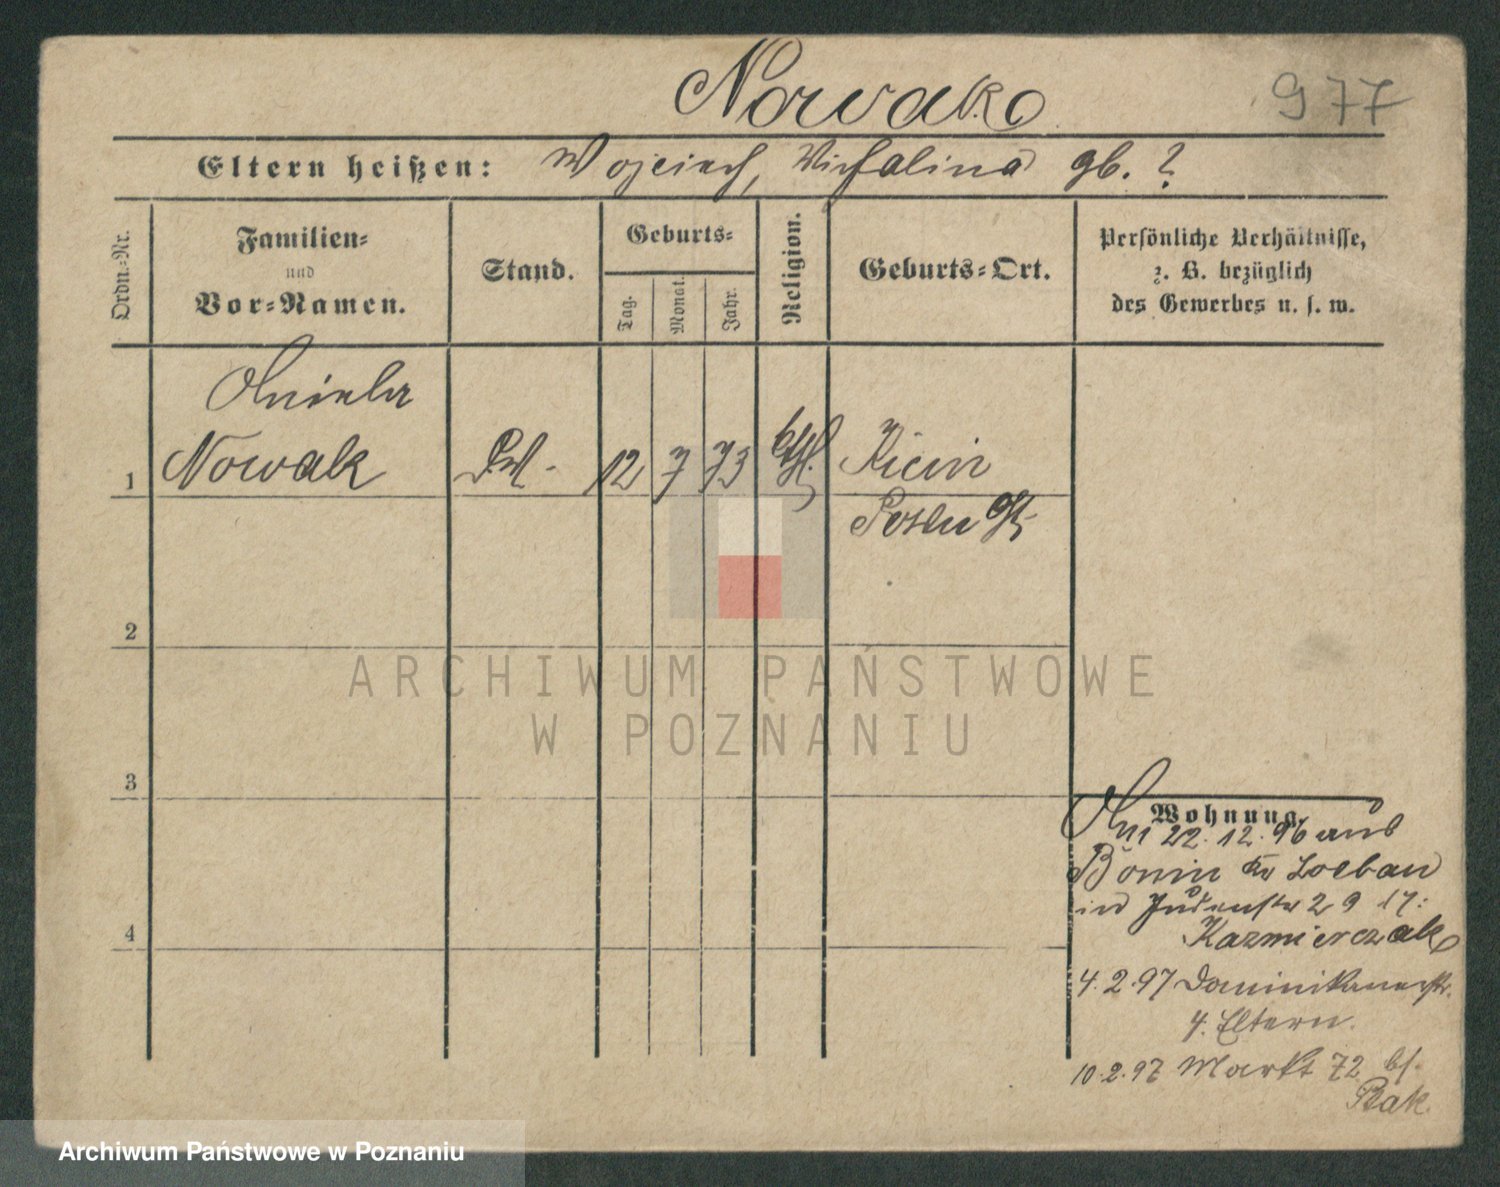 Nowak
977
Eltern heißen: Wojciech, Michalina gb. ?
Ordn.-Nr.
Familien-
und
Vor-Namen.
Stand.
Geburts-
Tag.
Monat.
Jahr.
Religion.
Geburts-Ort.
Persönliche Verhältnisse,
z. B. bezüglich
des Gewerbes u. s. w.
1 Nowak 12 7 73 kth. Kicin
Posen Ost
2
3
4
ARCHIWUM PAŃSTWOWE
W POZNANIU
Wohnung.
22.12.96 aus
Bonin Kr Loebau
in Judenstr 29
Kazmierczak
4.2.97 Dominikanerstr.
4. Eltern.
10.2.97 Markt 72 bf.
Ptak.
Archiwum Państwowe w Poznaniu